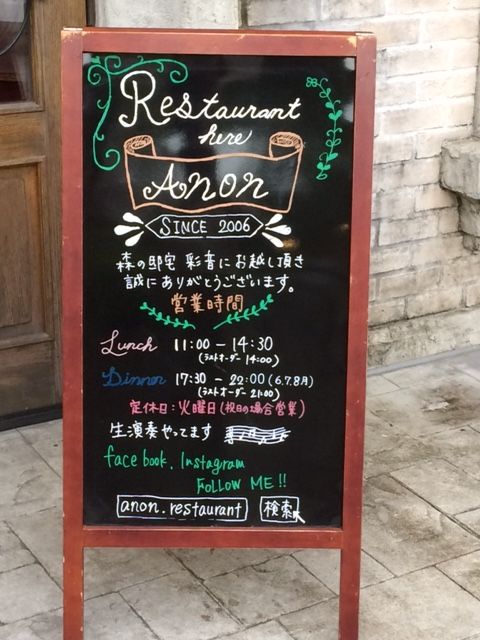 Restaurant
here
Anon
SINCE 2006
森の邸宅 彩音にお越し頂き
誠にありがとうございます。
営業時間
Lunch 11:00 - 14:30
(ラストオーダー 14:00)
Dinner 17:30 - 22:00 (6.7.8月)
(ラストオーダー 21:00)
定休日:火曜日(祝日の場合営業)
生演奏やってます
facebook. Instagram
FOLLOW ME!!
anon.restaurant 検索